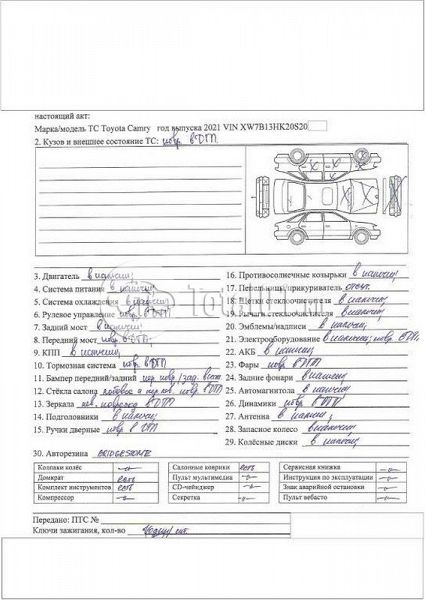 настоящий акт:
Марка/модель ТС Toyota Camry год выпуска 2021 VIN XW7B13HK20S20
2. Кузов и внешнее состояние ТС: повр. в ДТП
3. Двигатель в наличии
4. Система питания в наличии
5. Система охлаждения в наличии
6. Рулевое управление повр. в ДТП
7. Задний мост в наличии
8. Передний мост повр. в ДТП
9. КПП в наличии
10. Тормозная система повр. в ДТП
11. Бампер передний/задний пер повр /зад.
12. Стёкла салона лобовое повр. в ДТП
13. Зеркала в ДТП
14. Подголовники в наличии
15. Ручки дверные повр в ДТП
16. Противосолнечные козырьки в наличии
17. Пепельница/прикуриватель отсут.
18. Щетки стеклоочистителя в наличии
19. Рычаги стеклоочистителя в наличии
20. Эмблемы/надписи в наличии
21. Электрооборудование в наличии, повр в ДТП
22. АКБ в наличии
23. Фары повр. в ДТП
24. Задние фонари в наличии
25. Автомагнитола в наличии
26. Динамики повр. в ДТП
27. Антенна в наличии
28. Запасное колесо в наличии
29. Колёсные диски в наличии
30. Авторезина BRIDGESTONE
Колпаки колёс
Домкрат есть
Комплект инструментов есть
Компрессор
Салонные коврики есть
Пульт мультимедиа
CD-чейнджер
Секретка
Сервисная книжка
Инструкция по эксплуатации
Знак аварийной остановки
Пульт вебасто
Передано: ПТС №
Ключи зажигания, кол-во